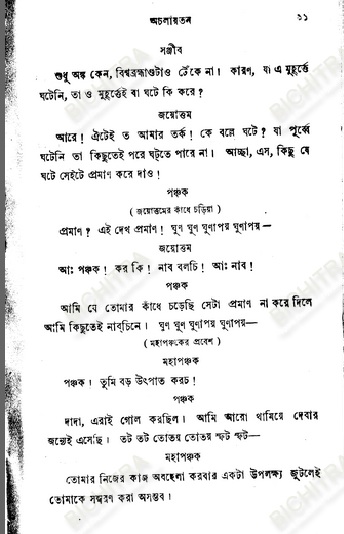 অচলায়তন ২১
সঞ্জীব
শুধু অঙ্ক কেন, বিশ্বব্রহ্মাণ্ডটাও টেঁকে না। কারণ, যা এ মুহূর্ত্তে
ঘটেনি, তা ও মুহূর্ত্তেই বা ঘটে কি করে?
জয়োত্তম
আরে! ঐটেই ত আমার তর্ক! কে বল্লে ঘটে? যা পূর্ব্বে
ঘটেনি তা কিছুতেই পরে ঘট্‌তে পারে না। আচ্ছা, এস, কিছু যে
ঘটে সেইটে প্রমাণ করে দাও!
পঞ্চক
(জয়োত্তমের কাঁধে চড়িয়া)
প্রমাণ? এই দেখ প্রমাণ! ঘুণ ঘুণ ঘুণাপয় ঘুণাপয়—
জয়োত্তম
আঃ পঞ্চক! কর কি! নাব বলচি! আঃ নাব!
পঞ্চক
আমি যে তোমার কাঁধে চড়েছি সেটা প্রমাণ না করে দিলে
আমি কিছুতেই নাবচিনে। ঘুণ ঘুণ ঘুণাপয় ঘুণাপয়—
(মহাপঞ্চকের প্রবেশ)
মহাপঞ্চক
পঞ্চক! তুমি বড় উৎপাত করচ!
পঞ্চক
দাদা, এরাই গোল করছিল। আমি আরো থামিয়ে দেবার
জন্যেই এসেছি। তট তট তোতয় তোতয় স্ফট স্ফট—
মহাপঞ্চক
তোমার নিজের কাজ অবহেলা করবার একটা উপলক্ষ্য জুটলেই
তোমাকে সম্বরণ করা অসম্ভব।
BICHITRA